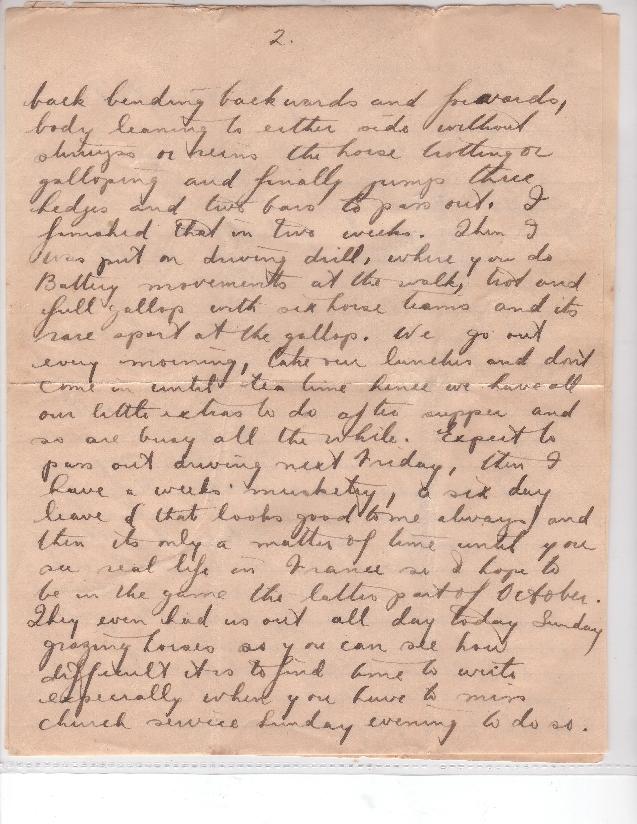 2.
back bending backwards and forwards,
body leaning to either side without
stirrups or reins the horse trotting or
galloping and finally jumps three
hedges and two bars to pass out. I
finished that in two weeks. Then I
was put on driving drill, where you do
Battery movements at the walk, trot and
full gallop with six horse teams and its
rare sport at the gallop. We go out
every morning, take our lunches and don't
come in until tea time hence we have all
our little extras to do after supper and
so are busy all the while. Expect to
pass out driving next Friday, then I
have a weeks' musketry, a six day
leave (that looks good to me always) and
then its only a matter of time until you
see real life in France so I hope to
be in the game the latter part of October.
They even had us out all day today Sunday
grazing horses so you can see how
difficult it is to find time to write
especially when you have to miss
church service Sunday evening to do so.